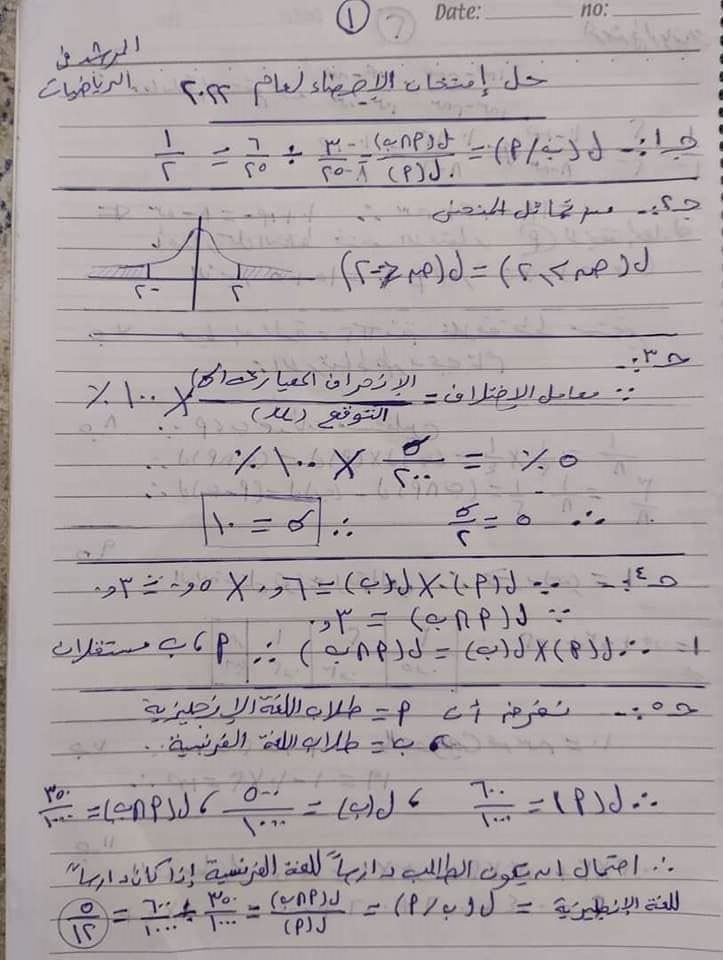 Date: no:
١
المرشد فى
الرياضيات
حل إمتحان الإحصاء لعام ٢٠٢٢
جـ١:- ل(ب/P) = ل(P∩ب)/ل(P) = ÷ ٦/٢٥ = ١/٢
جـ٢:- من تماثل المنحنى
ل(ص ≥ ٢) = ل(ص ≤ -٢)
٢- ٢
جـ٣:-
∵ معامل الإختلاف = الإنحراف المعيارى (σ)/التوقع (μ) × ١٠٠ ٪
٥٪ = σ/٢٠٠ × ١٠٠ ٪
∴ ٥ = σ/٢ ∴ σ = ١٠
جـ٤:- ∵ ل(P) × ل(ب) = ٦و٠ × ٥و٠ = ٣و٠
∵ ل(P∩ب) = ٣و٠
∴ ل(P) × ل(ب) = ل(P∩ب) ∴ P، ب مستقلان
جـ٥:- نفرض أن P = طلاب اللغة الإنجليزية
، ب = طلاب اللغة الفرنسية
∴ ل(P) = ٦٠٠/١٠٠٠ ، ل(ب) = ٥٠٠/١٠٠٠ ، ل(P∩ب) = ٣٥٠/١٠٠٠
∴ احتمال ان يكون الطالب دارساً للغة الفرنسية إذا كان دارساً
للغة الإنجليزية = ل(ب/P) = ل(P∩ب)/ل(P) = ٣٥٠/١٠٠٠ ÷ ٦٠٠/١٠٠٠ = ٥/١٢